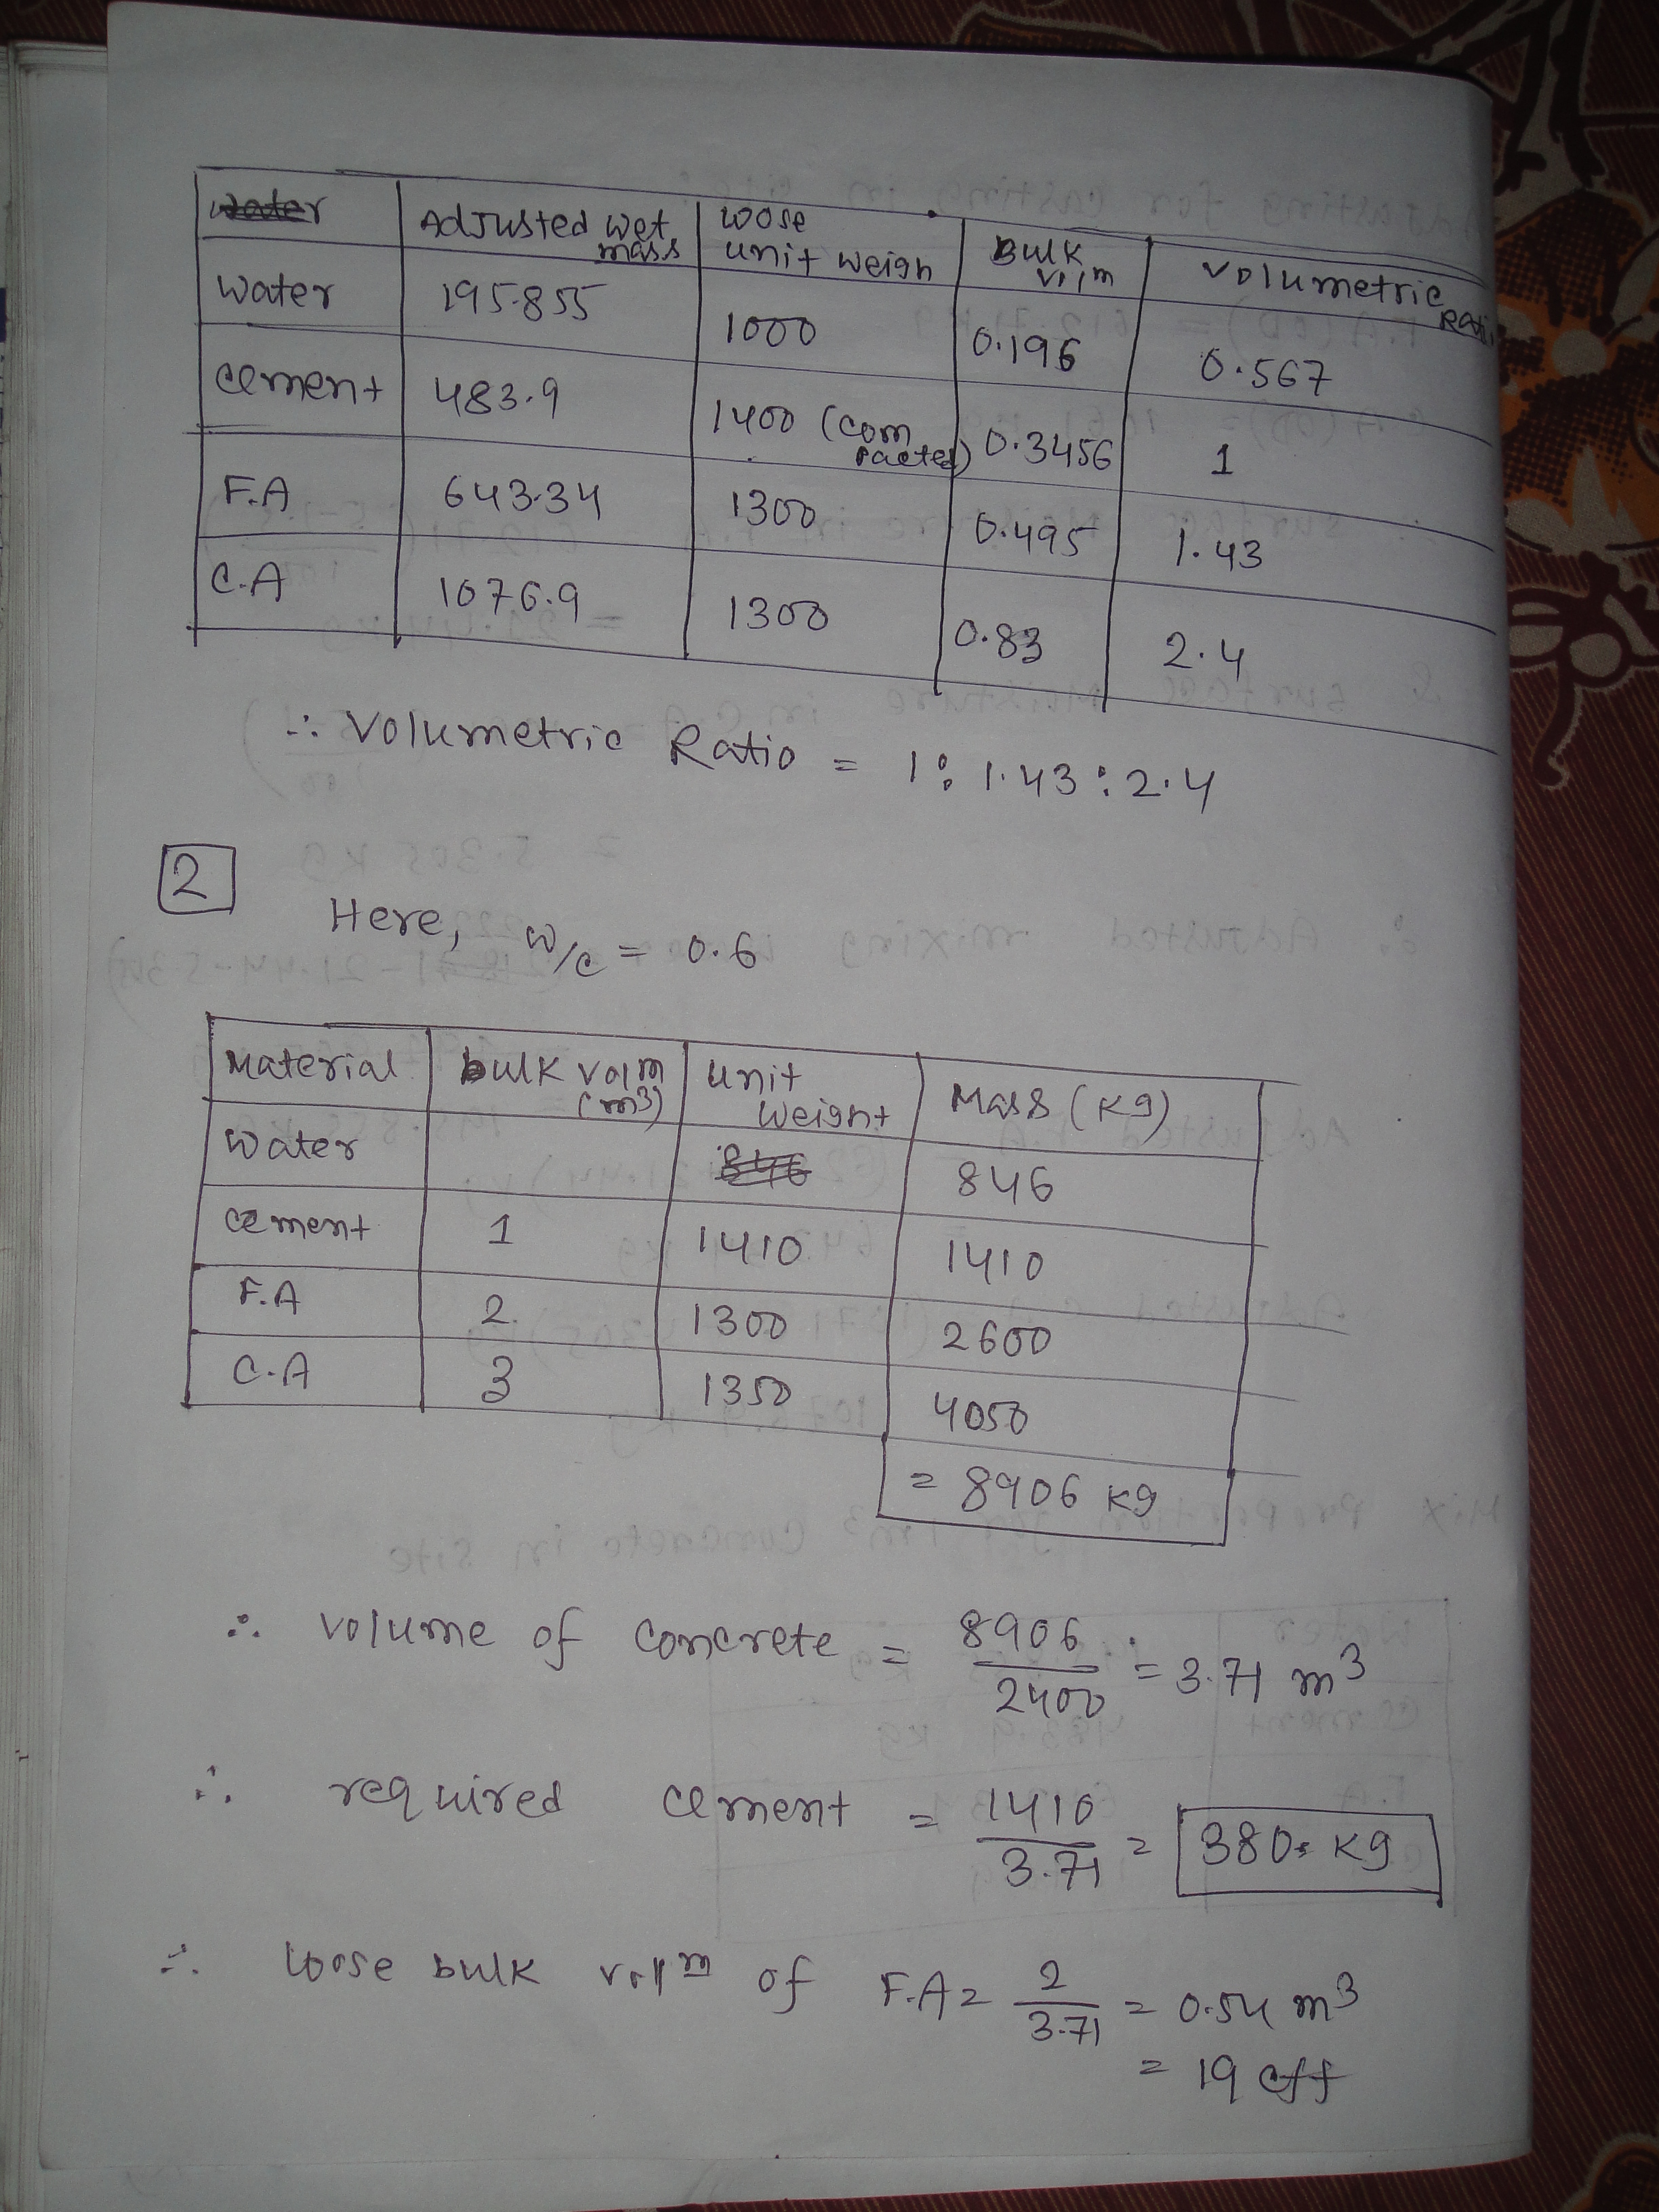 Adjusted wet mass | Loose unit weigh | Bulk volm | Volumetric Ratio
Water | 195.855 | 1000 | 0.196 | 0.567
Cement | 483.9 | 1400 (compacted) | 0.3456 | 1
F.A | 643.34 | 1300 | 0.495 | 1.43
C.A | 1076.9 | 1300 | 0.83 | 2.4
∴ Volumetric Ratio = 1:1.43:2.4
2
Here, w/c = 0.6
Material | bulk volm (m³) | unit weight | Mass (kg)
Water | 846
Cement | 1 | 1410 | 1410
F.A | 2 | 1300 | 2600
C.A | 3 | 1350 | 4050
= 8906 kg
∴ volume of concrete = 8906/2400 = 3.71 m³
∴ required cement = 1410/3.71 = 380 kg
∴ loose bulk volm of F.A = 2/3.71 = 0.54 m³
= 19 cft